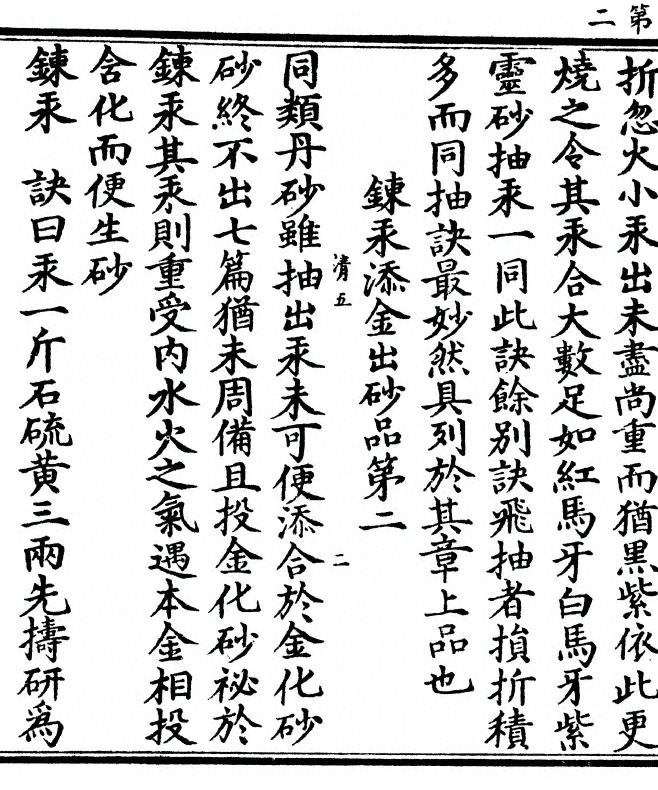 第二
折忽火小汞出未盡尚重而猶黑紫依此更
燒之令其汞合大數足如紅馬牙白馬牙紫
靈砂抽汞一同此訣餘別訣飛抽者損折積
多而同抽訣最妙然具列於其章上品也
鍊汞添金出砂品第二
清五 二
同類丹砂雖抽出汞未可便添合於金化砂
砂終不出七篇猶未周備且投金化砂祕於
鍊汞其汞則重受内水火之氣遇本金相投
含化而便生砂
鍊汞 訣曰汞一斤石硫黄三兩先擣研爲